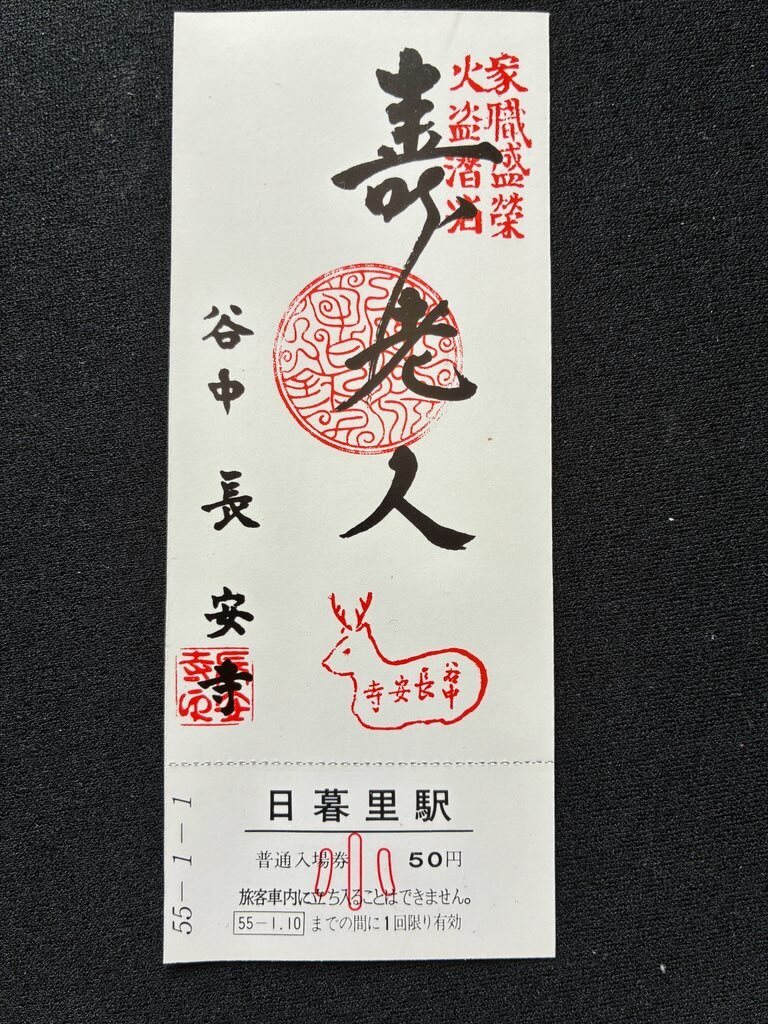 家職盛榮
火盗潜消
壽老人
谷中 長安寺
谷中
長安寺
日暮里駅
普通入場券 50円
小
旅客車内に立ち入ることはできません。
55-1.10 までの間に1回限り有効
55-1-1